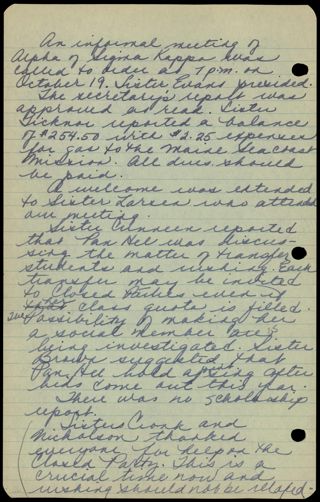 An informal meeting of
Alpha of Sigma Kappa was
called to order at 7 p.m. on
October 19. Sister Evans presided.
The secretary's report was
approved as read. Sister
Ticknor reported a balance
of $254.50 with $2.25 expenses
for gas to the Maine Seacoast
Mission. All dues should
be paid.
A welcome was extended
to Sister Larsen who attended
our meeting.
Sister Cunneen reported
that Pan Hel was discus-
sing the matter of transfer
students and rushing. Each
transfer may be invited
to Closed Parties even if
class quota is filled.
Possibility of making her
a social member are
being investigated. Sister
Brown suggested that
Pan Hel hold a
bids come out this year.
There was no scholarship
report.
Sisters Cronk and
Nicholson thanked
everyone for help on the
Closed Party. This is a
crucial time now and
rushing should not be relaxed-